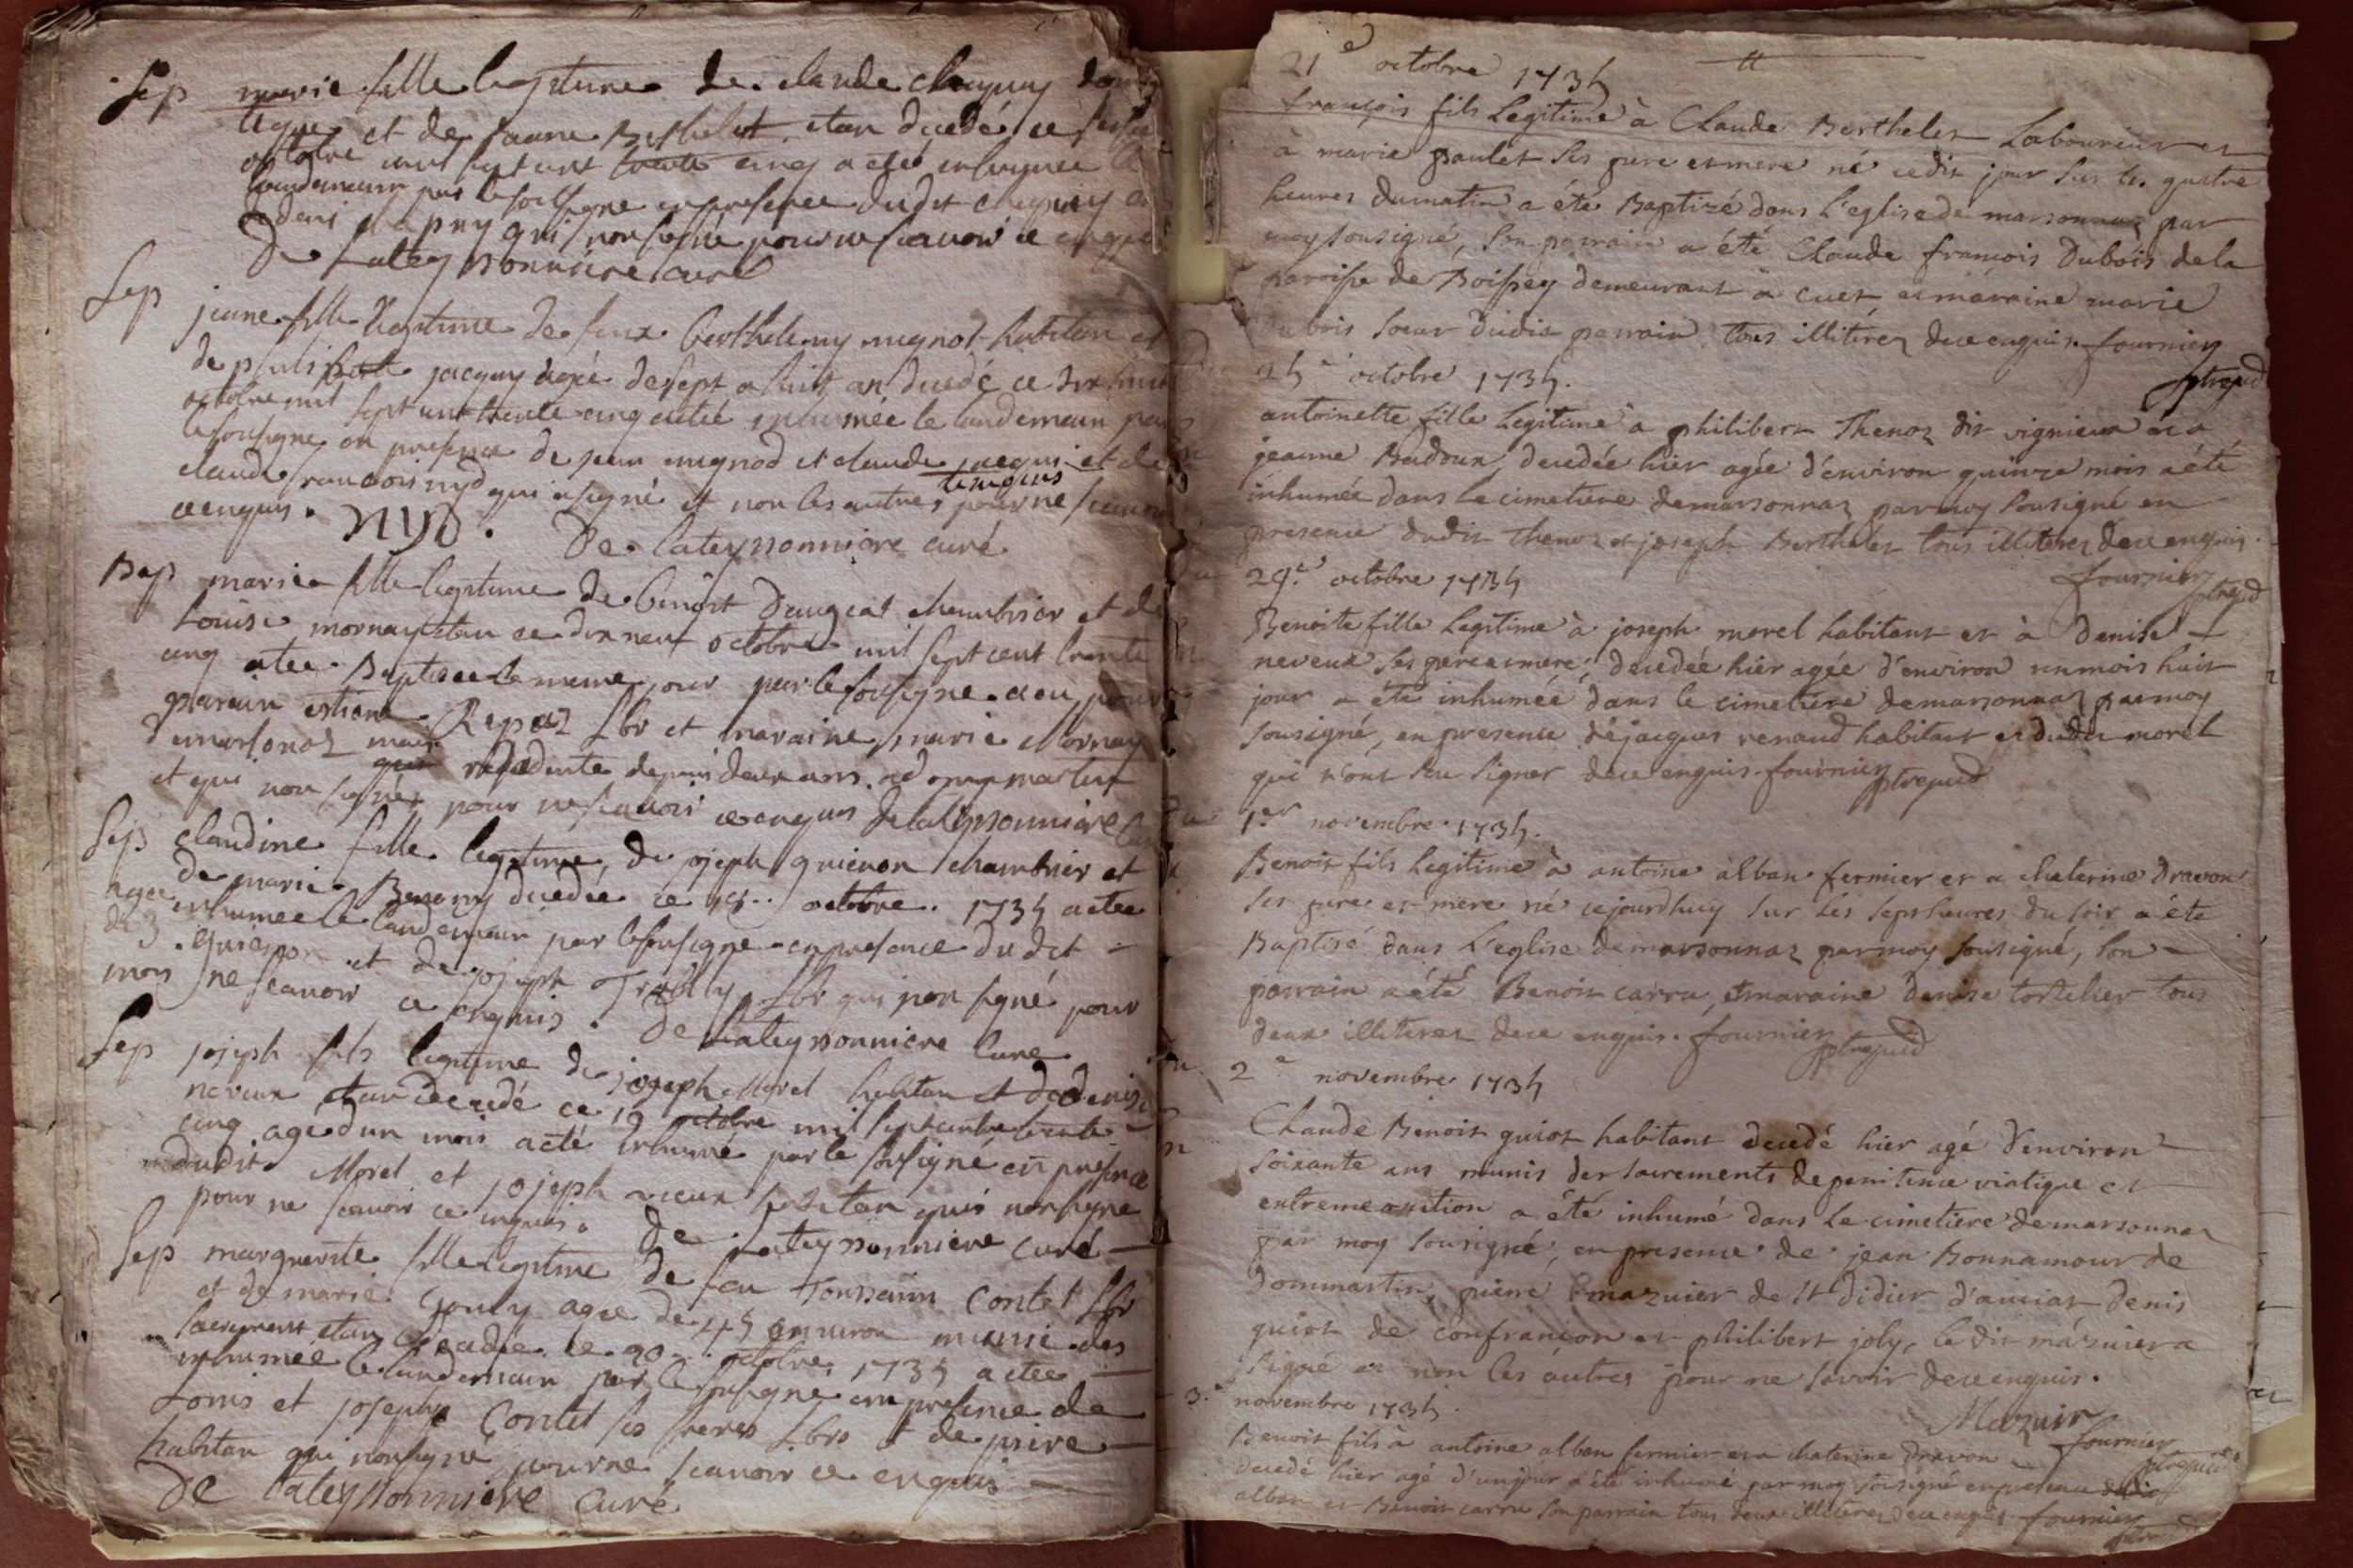 Sep marie fille legitime de claude chagny
et de Jeanne Berthelet etan decedé ce
octobre mil sept cent trente cinq a eté inhumée le
lendemain par le sousigne en presence dudit chagny et
de deni qui non signé pour ne scavoir ce enquis
De Lateyssonniere curé
Sep jeanne fille legitime de feux berthelemy mignot habitan et
de philiberte jacquy agée de sept a huit an decedé ce dix huit
octobre mil sept cent trente cinq a eté inhumée le landemain par
le sousigne en presence de jean mignod et claude jacqui et de
temoins
claude francois nyd qui a signé et non les autres pour ne scavoir
ce enquis. NYD. De Lateyssonniere curé.
Bap marie fille legitime de benoist Daugeat chambrier et de
Louise mornay etan ce dix neuf octobre mil sept cent trente
cinq a eté Baptisee le meme jour par le sousigne a eu pour
parain estiene Repaz lbr et maraine marie Mornay
demarsonas residente depuis deux ans a dommartin
et qui non signér pour ne scavoir ce enquis De Lateyssonniere
Sep claudine fille legitime, de Joseph guienon chambrier et
de marie Benony decedee ce 18.. octobre. 1735 a etee
agee inhumee le landemain par le sousigne en presence du dit
de 3 guienon et de joseph lbr qui non signé pour
mois ne scavoir ce enquis. De Lateyssonniere Curé
Sep joseph fils legitime de joseph Morel habitan et de denise
neveux etan decedé ce 19 octobre mil sept cent trente
cinq agé d'un mois a eté inhumé par le sousigné en presence
dudit Morel et joseph vieux habitan qui non signe
pour ne scavoir ce enquis. De Lateyssonniere curé
Sep marguerite fille legitime de feu Toussain Contet lbr
et de marie Gouly agee de 45 environ munie des
sacrement etan decedee le 20.. octobre 1735 a etee
inhumée le landemain par le sousigné en presence de
Louis et joseph Contet ses freres lbrs et de pierre
habitan qui non signé pour ne scavoir ce enquis
De Lateyssonniere curé
21e octobre 1735
françois fils Legitime à Claude Berthelet Laboureur et
à marie paulet ses pere et mere né cedit jour sur les quatre
heures dumatin a été Baptizé dans l'eglise de marsonnaz par
moy sousigné, son parrain a été Claude françois Dubois dela
paroisse de Boissey demeurant à cuet et maraine marie
Dubois soeur dudit parrain tous illitérez dece enquis. fournier
ptre
25e octobre 1735.
antoinette fille Legitime à philibert Thenoz dit vignieux et a
jeanne Badoux, decedée hier agée d'environ quinze mois a été
inhumée dans Le cimetiere demarsonnaz parmoy sousigné en
presence dudit Thenoz et joseph Berthelet tous illiterez dece enquis.
fournier ptre
29e octobre 1735
Benoite fille Legitime à joseph morel habitant et à Denise
neveux ses pere et mere, decedée hier agée d'environ un mois huit
jour a été inhumée dans le cimetiere demarsonnaz parmoy
sousigné, en presence dejacques renaud habitant et dudit morel
qui n'ont sçu signer dece enquis. fournier ptre
1er novembre 1735.
Benoit fils legitime à antoine alban fermier et a chaterine dravon
ses pere et mere né cejourdhuy sur les sept heures du soir a été
Baptisé dans L'eglise demarsonnaz parmoy sousigné, son
parrain a été Benoit carru, et maraine denise tortelier tous
deux illiterez dece enquis. fournier ptre
2e novembre 1735
Claude Benoit guiot habitant decedé hier agé d'environ
soixante ans munis des sacrements de penitence viatique et
extreme onction a été inhumé dans Le cimetiere demarsonnaz
par moy sousigné, en presence de jean Bonnamour de
Dommartin, pierre mazuier de St didier d'aussiat denis
guiot de confrançon et philibert joly, le dit mazuier a
signé et non les autres pour ne savoir dece enquis.
Mazuir fournier
3.e novembre 1735.
Benoit fils à antoine alban fermier et a chaterine dravon
decedé hier agé d'unjour a été inhumé par moy sousigné enpresence dudit
alban et Benoit carru son parrain tous deux illiterez dece enquis fournier